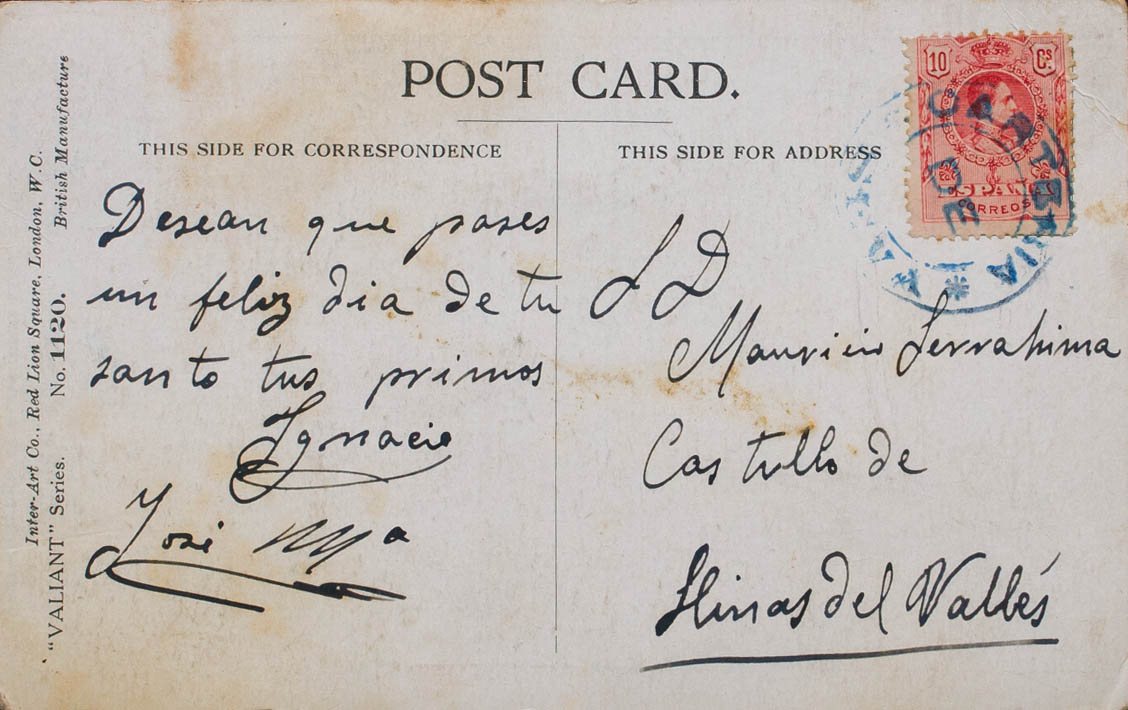 POST CARD.
THIS SIDE FOR CORRESPONDENCE
THIS SIDE FOR ADDRESS
10 Cs
ESPAÑA
CORREOS
CARTERIA
DE
Desean que pases
un feliz dia de tu
santo tus primos
Ignacio
y
José Mª
S D
Mauricio Serrahima
Castillo de
Llinas del Vallés
Inter-Art Co., Red Lion Square, London, W.C.
"VALIANT" Series. No. 1120. British Manufacture